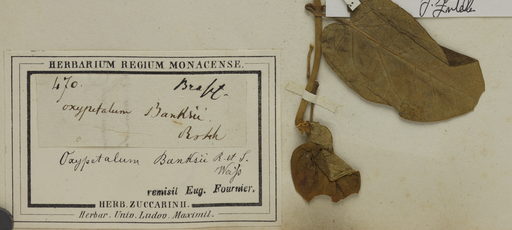 HERBARIUM REGIUM MONACENSE.
470.
oxypetalum Banksii
Oxypetalum Banksii R. et S.
remisit Eug. Fournier.
HERB. ZUCCARINII.
Herbar. Univ. Ludov. Maximil.